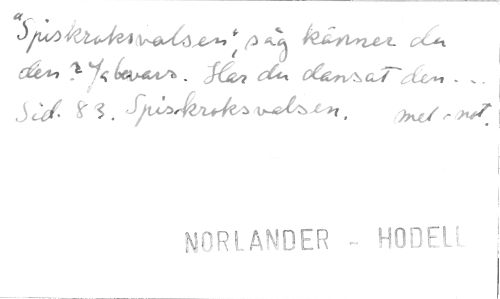 "Spiskroksvalsen", säg känner du
den? Ja bevars. Har du dansat den...
Sid. 83. Spiskroksvalsen. mel-not.
NORLANDER - HODELL